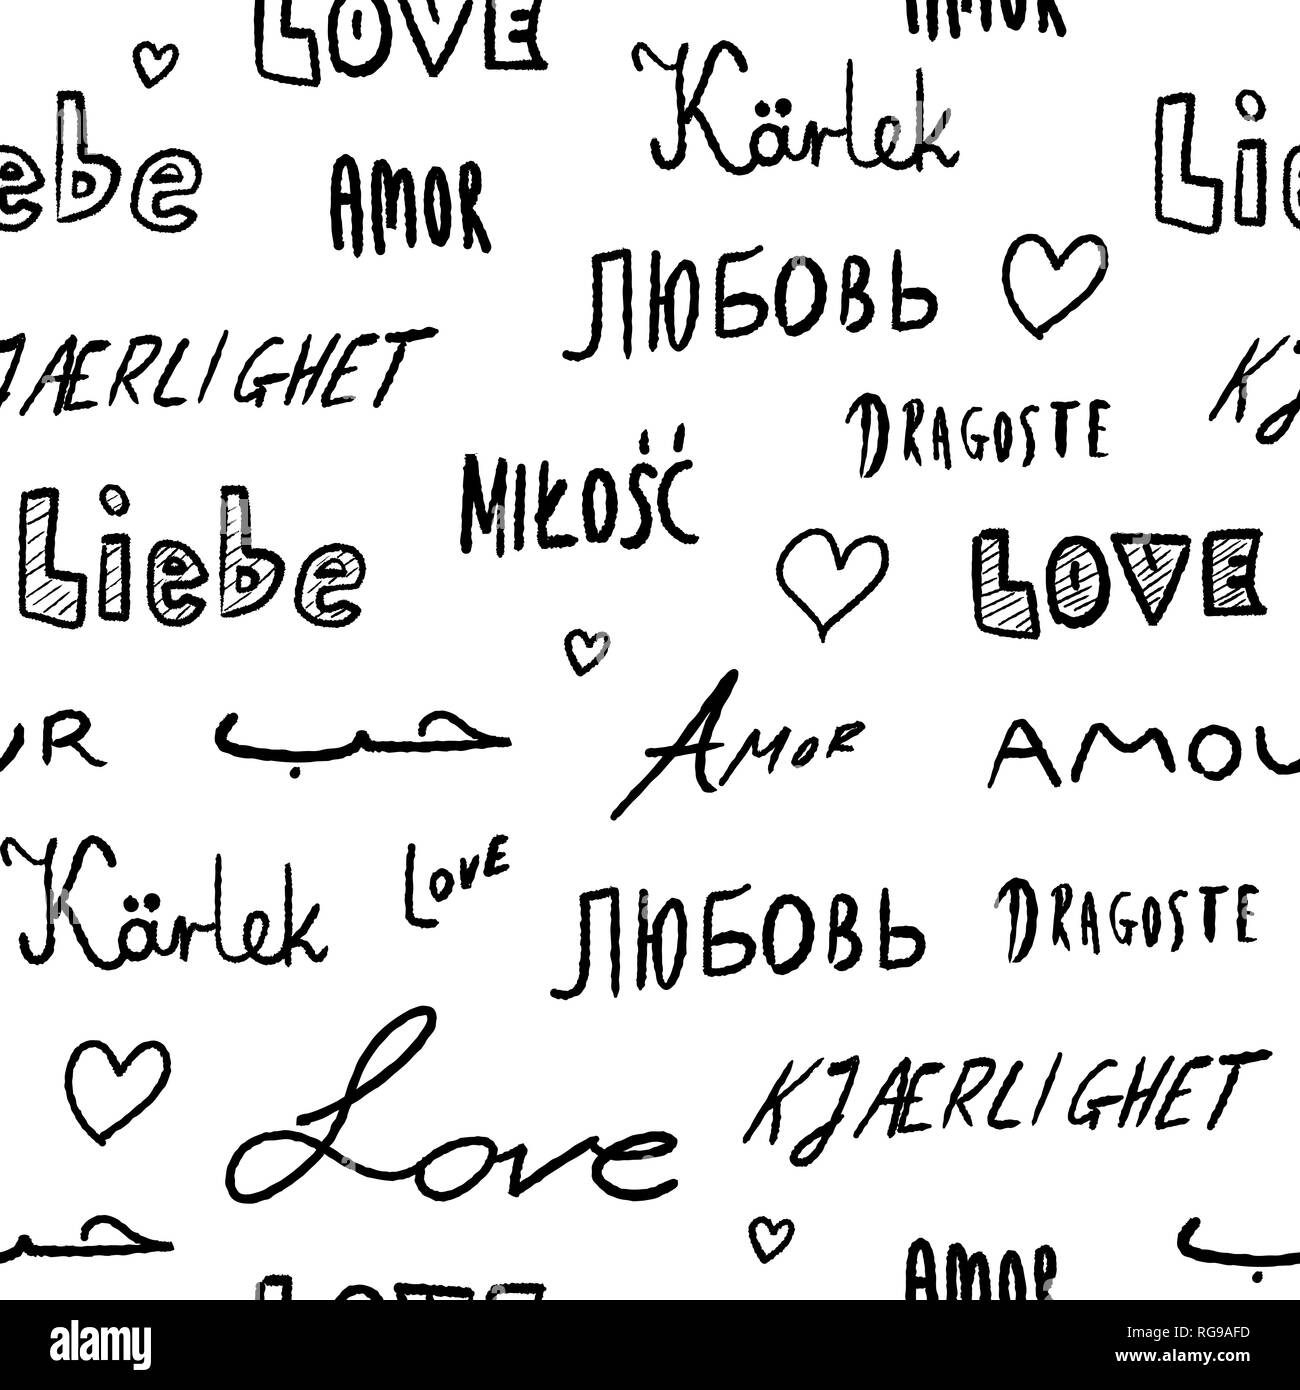 LOVE
AMOR
Kärlek
Liebe
AMOR
Lie
ЛЮБОВЬ
KJÆRLIGHET
DRAGOSTE
KJ
MIŁOŚĆ
Liebe
LOVE
UR
حب
AMOR
AMOU
Kärlek
LOVE
ЛЮБОВЬ
DRAGOSTE
Love
KJÆRLIGHET
حب
AMOR
LOVE
alamy
Image ID: RG9AFD
www.alamy.com